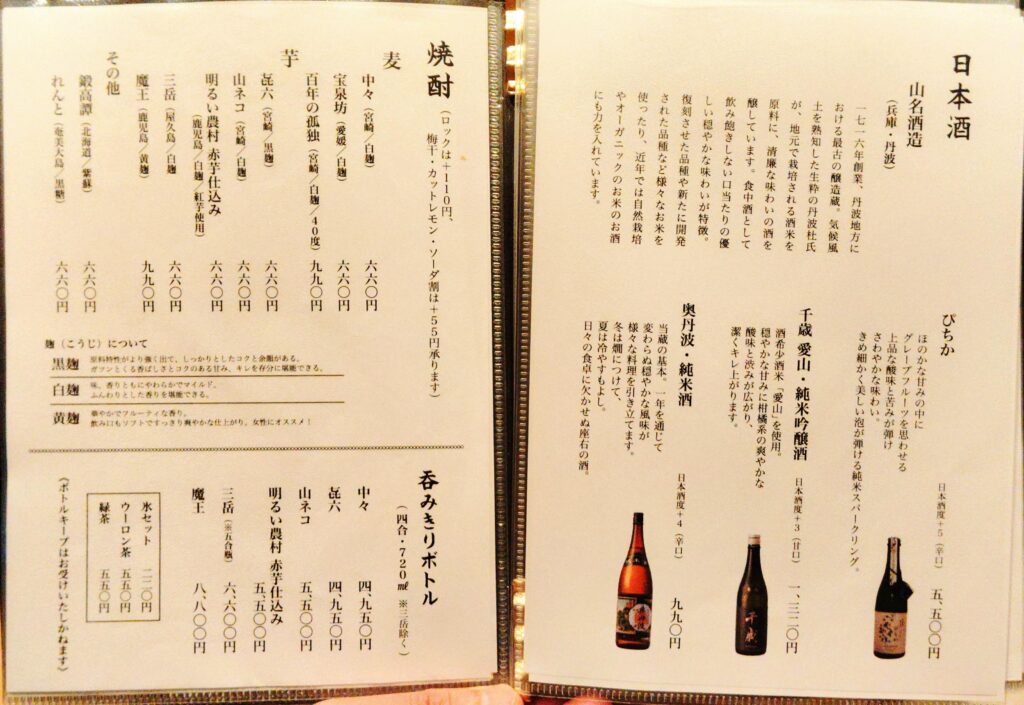 日本酒
山名酒造
（兵庫・丹波）
一七一六年創業、丹波地方に
おける最古の醸造蔵。気候風
土を熟知した生粋の丹波杜氏
が、地元で栽培される酒米を
原料に、清廉な味わいの酒を
醸しています。食中酒として
飲み飽きしない口当たりの優
しい穏やかな味わいが特徴。
復刻させた品種や新たに開発
された品種など様々なお米を
使ったり、近年では自然栽培
やオーガニックのお米のお酒
にも力を入れています。
ぴちか
ほのかな甘みの中に
グレープフルーツを思わせる
上品な酸味と苦みが弾け
さわやかな味わい。
きめ細かく美しい泡が弾ける純米スパークリング。
日本酒度＋５（辛口）
五、五〇〇円
千歳 愛山・純米吟醸酒
酒希少酒米「愛山」を使用。
穏やかな甘みに柑橘系の爽やかな
酸味と渋みが広がり、
潔くキレ上がります。
日本酒度＋３（甘口）
一、三二〇円
奥丹波・純米酒
当蔵の基本。一年を通じて
変わらぬ穏やかな風味が
様々な料理を引き立てます。
冬は燗につけて、
夏は冷やすもよし。
日々の食卓に欠かせぬ座右の酒。
日本酒度＋４（辛口）
九九〇円
千歳
焼酎
（ロックは＋１１０円、
梅干・カットレモン・ソーダ割は＋５５円承ります）
麦
中々（宮崎／白麹） 六六〇円
宝泉坊（愛媛／白麹） 六六〇円
百年の孤独（宮崎／白麹／４０度） 九九〇円
芋
㐂六（宮崎／黒麹） 六六〇円
山ネコ（宮崎／白麹） 六六〇円
明るい農村 赤芋仕込み
（鹿児島／白麹／紅芋使用） 六六〇円
三岳（屋久島／白麹） 六六〇円
魔王（鹿児島／黄麹） 九九〇円
その他
鍛高譚（北海道／紫蘇） 六六〇円
れんと（奄美大島／黒糖） 六六〇円
麹（こうじ）について
黒麹
原料特性がより強く出て、しっかりとしたコクと余韻がある。
ガツンとくる香ばしさとコクのある甘み、キレを存分に堪能できる。
白麹
味、香りともにやわらかでマイルド。
ふんわりとした香りを堪能できる。
黄麹
華やかでフルーティな香り。
飲み口もソフトですっきり爽やかな仕上がり。女性にオススメ！
呑みきりボトル
（四合・７２０㎖ ※三岳除く）
中々 四、九五〇円
㐂六 四、九五〇円
山ネコ 五、五〇〇円
明るい農村 赤芋仕込み 五、五〇〇円
三岳（※五合瓶） 六、六〇〇円
魔王 八、八〇〇円
氷セット 二二〇円
ウーロン茶 五五〇円
緑茶 五五〇円
（ボトルキープはお受けいたしかねます）